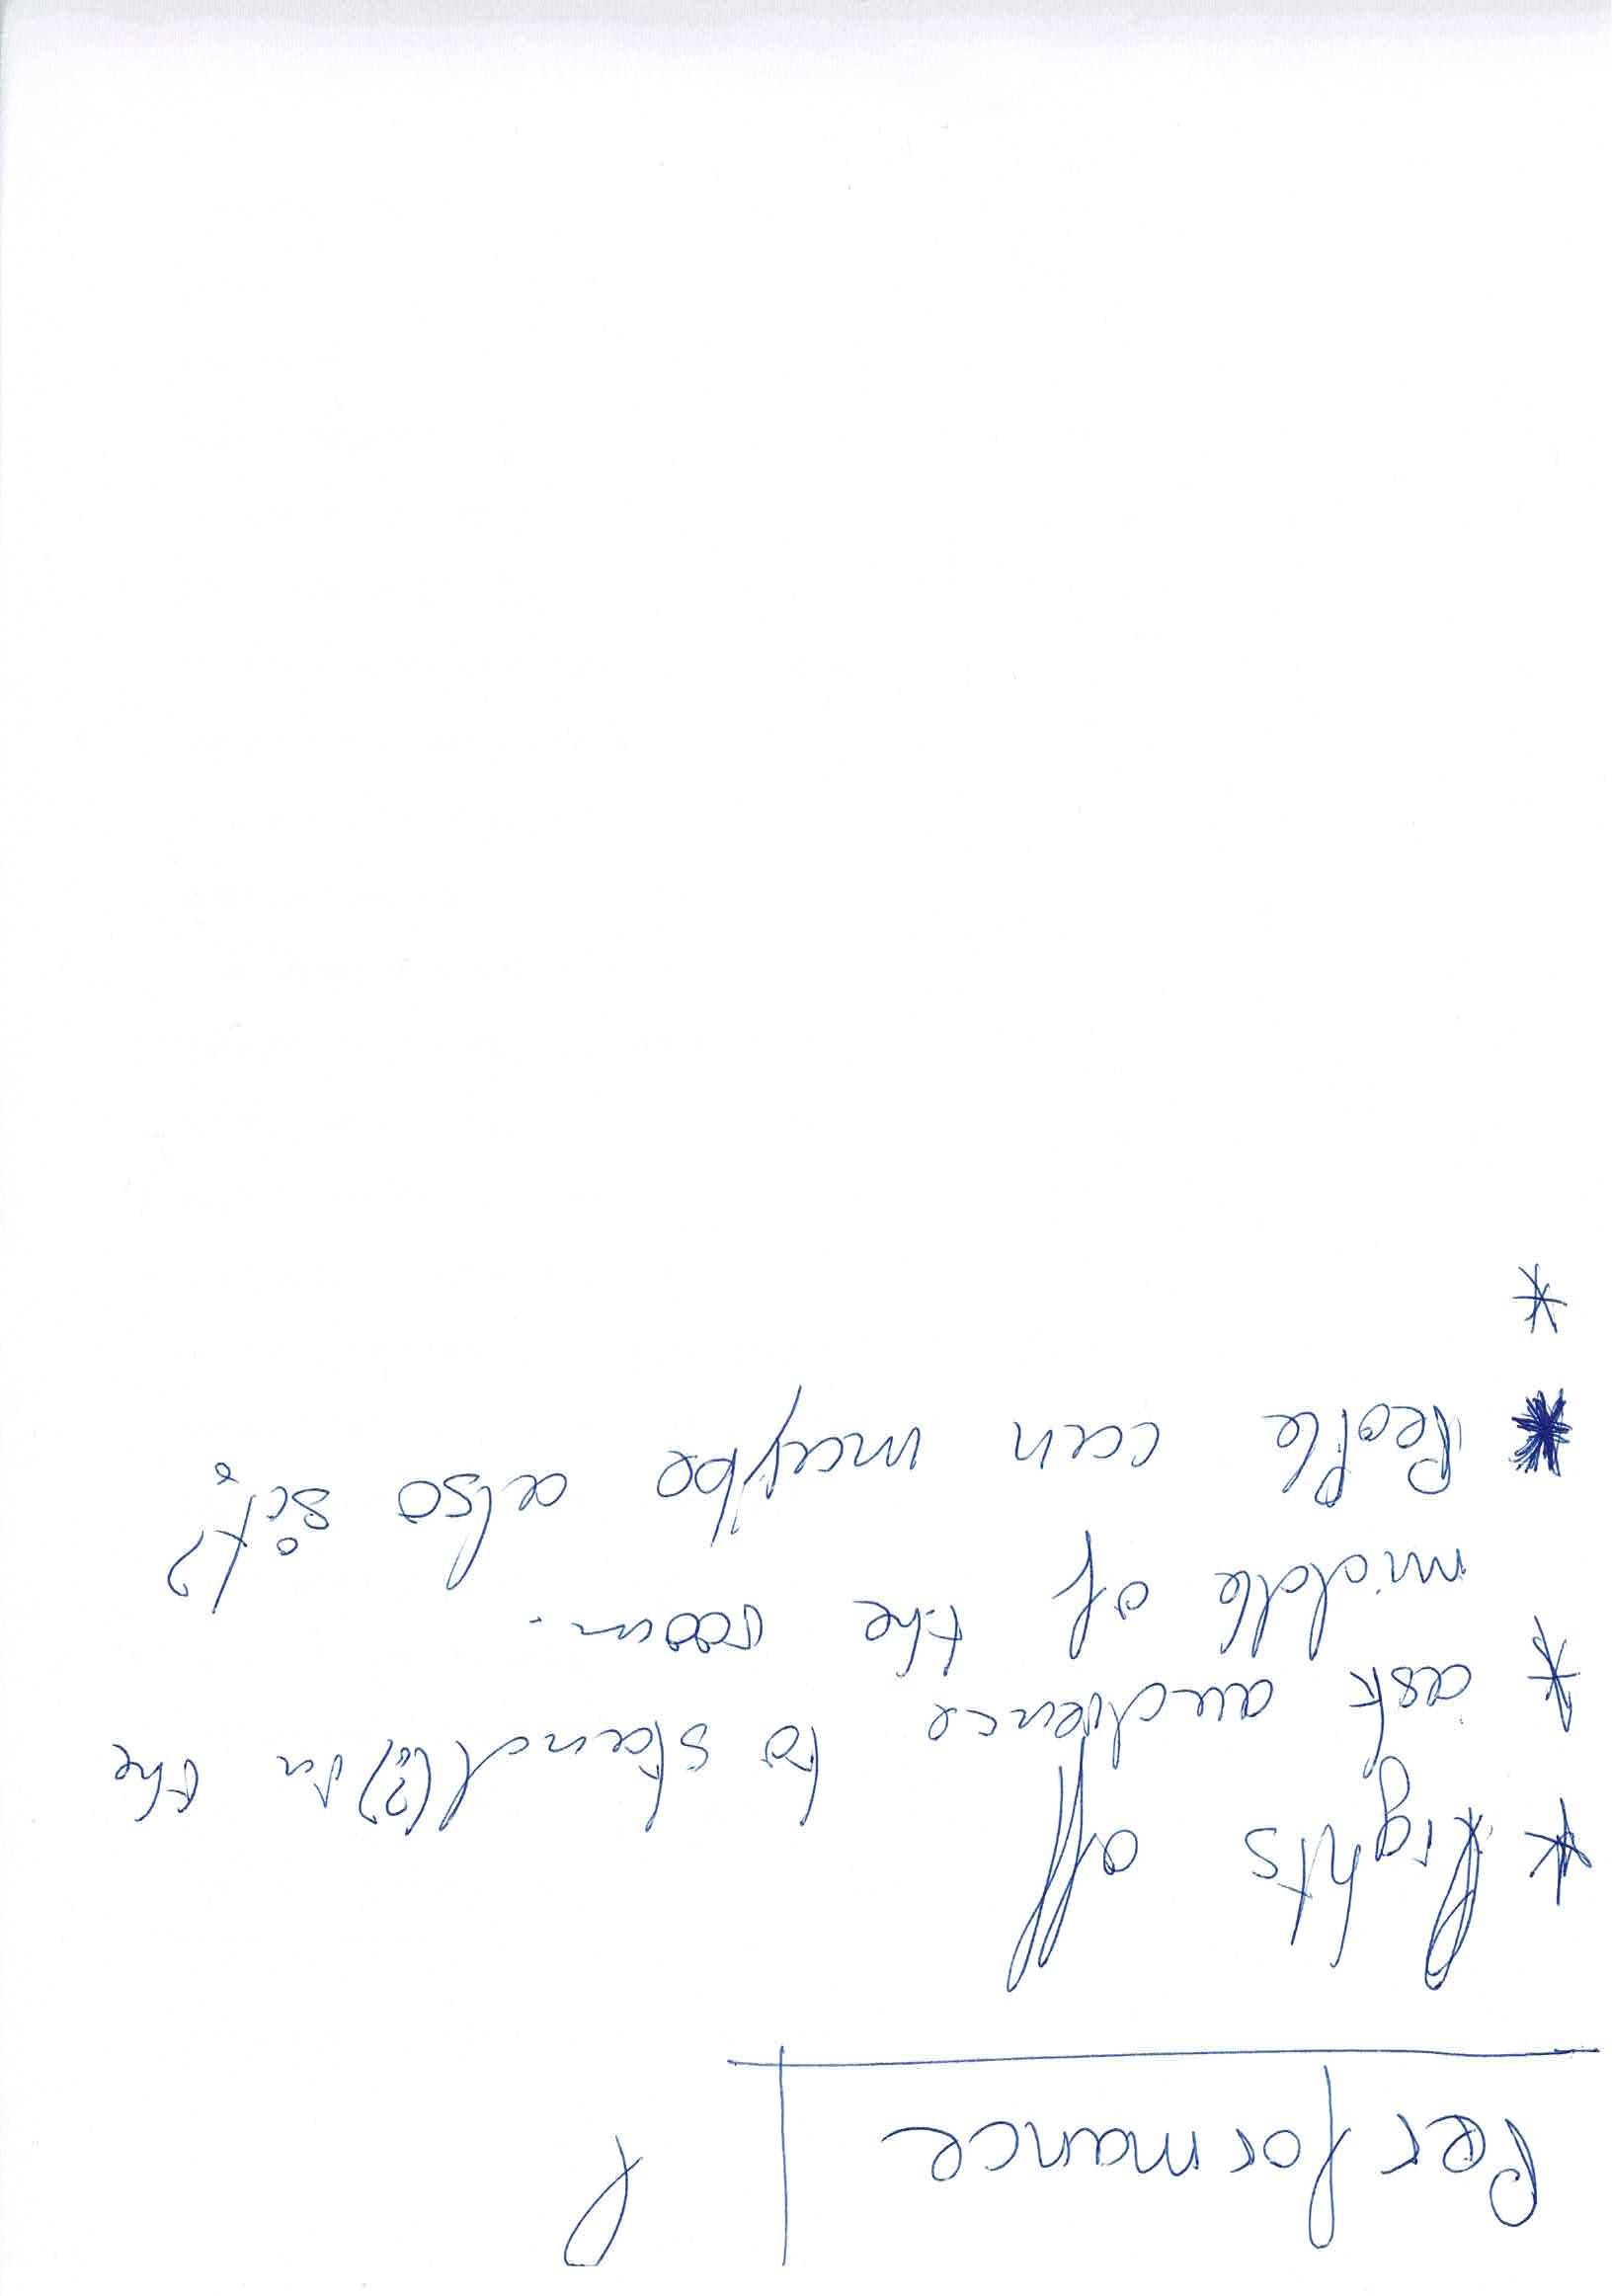 Performance | P
* lights off
* ask audience to stand(?) in the
middle of the room.
* People can maybe also sit?
*